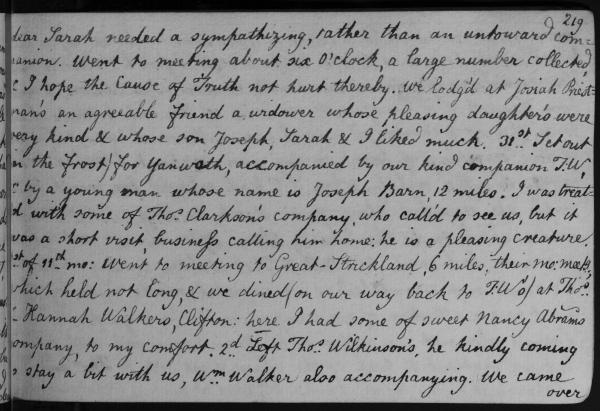 219
dear Sarah needed a sympathizing, rather than an untoward com=
panion. Went to meeting about six O'clock, a large number collected,
& I hope the Cause of Truth not hurt thereby. We lodg'd at Josiah Priest-
man's an agreeable friend a widower whose pleasing daughters were
very kind & whose son Joseph, Sarah & I liked much. 31st. Set out
in the frost, for Yanwath, accompanied by our kind companion T.W,
& by a young man whose name is Joseph Barn, 12 miles. I was treat-
d with some of Thos. Clarkson's company, who call'd to see us, but it
was a short visit, business calling him home: he is a pleasing creature.
1st of 11th mo: Went to meeting to Great-Strickland, 6 miles, their mo: meetg.
which held not long, & we dined (on our way back to T.W's) at Thos.
& Hannah Walkers, Clifton: here I had some of sweet Nancy Abrams
company, to my comfort. 2d. Left Thos. Wilkinson's, he kindly coming
to stay a bit with us, Wm Walker also accompanying. We came
over